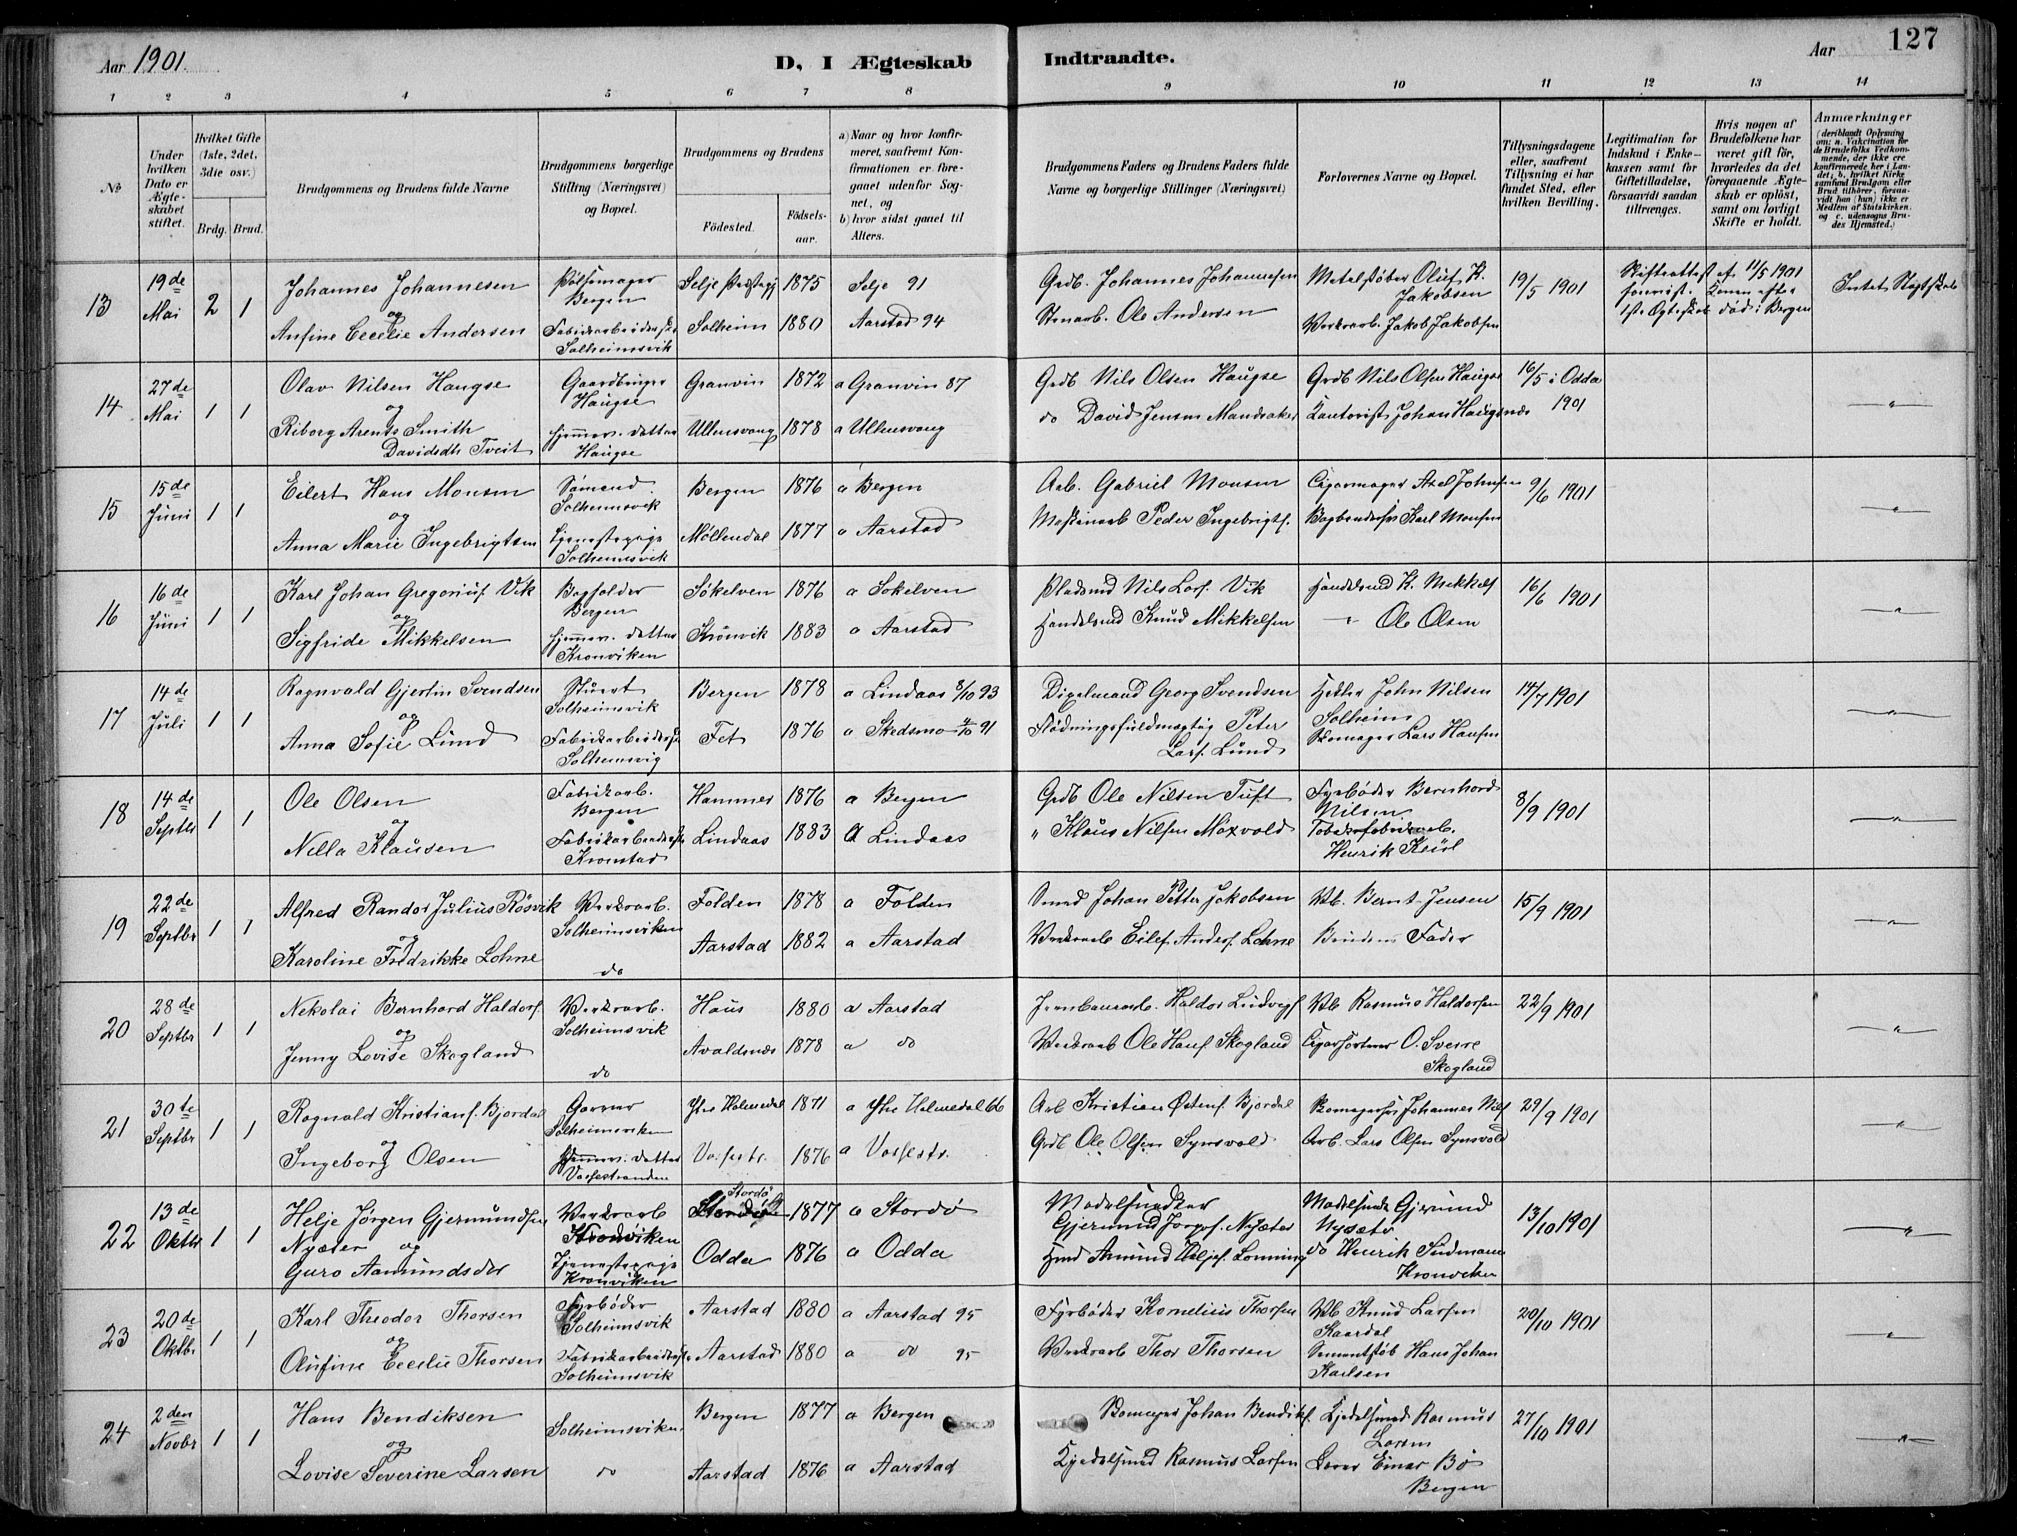 Aar 1901.
D, I Ægteskab Indtraadte.
Aar 127
1 2 3 4 5 6 7 8 9 10 11 12 13 14
№
Under hvilken Dato er Ægteskabet stiftet.
Hvilket Gifte (1ste, 2det, 3die osv.)
Brdg. Brud.
Brudgommens og Brudens fulde Navne
Brudgommens borgerlige Stilling (Næringsvei) og Bopæl.
Brudgommens og Brudens
Födested. Födselsaar.
a) Naar og hvor konfirmeret, saafremt Konfirmationen er foregaaet udenfor Sognet, og
b) hvor sidst gaaet til Alters.
Brudgommens Faders og Brudens Faders fulde Navne og borgerlige Stillinger (Næringsvei)
Forlovernes Navne og Bopæl.
Tillysningsdagene eller, saafremt Tillysning ei har fundet Sted, efter hvilken Bevilling.
Legitimation for Indskud i Enkekassen samt for Giftetilladelse, forsaavidt saadan tiltrænges.
Hvis nogen af Brudefolkene har været gift för, hvorledes da det foregaaende Ægteskab er oplöst, samt om lovligt Skifte er holdt.
Anmærkninger (deriblandt Oplysning om: a. Vakcination for de Brudefolks Vedkommende, der ikke ere konfirmerede her i Landet; b. hvilket Kirkesamfund Brudgom eller Brud tilhörer, forsaavidt han (hun) ikke er Medlem af Statskirken. og c. udensogns Brudes Hjemsted.)
13 19de Mai 2 1 Johannes Johannesen Pølsemager Bergen Selje Prestegj 1875 Selje 91 Grdb. Johannes Johannesen Metalstøber Oluf K. Jakobsen 19/5 1901 Skifteattest af 11/5 1901
og
Anfine Cecilie Andersen Fabrikarbeiderske Solheimsvik Solheim 1880 Aarstad 94 Stenarb. Ole Andersen Verkarb. Jakob Jakobsen
14 27de Mai 1 1 Olav Nilsen Haugse Gaardbruger Haugse Granvin 1872 a Granvin 87 Grdb Nils Olsen Haugse Grdb Nils Olsen Haugse 16/5 i Odda 1901 "
og
Riborg Arents Smith Davidsdtr Tveit Hjemmev. datter Haugse Ullensvang 1878 a Ullensvang do David Jensen Mandsaker Kontorist Johan Haugsnes
15 15de Juni 1 1 Eilert Hans Monsen Sømand Solheimsvik Bergen 1876 a Bergen Arb. Gabriel Monsen Cigarmager Axel Johnsen 9/6 1901 "
og
Anna Marie Ingebrigtsen Tjenestepige Solheimsvik Møllendal 1877 a Aarstad Maskinarb Peder Ingebrigts. Bogbindersv Karl Monsen
16 16de Juni 1 1 Karl Johan Gregorius Vik Bagfolder Bergen Søkelven 1876 a Søkelven Pladsmd Nils Lars. Vik Handelsmd K. Mikkels 16/6 1901 "
og
Sigfride Mikkelsen Hjemmev. datter Kronviken Kronvik 1883 a Aarstad Handelsmd Knud Mikkelsen " Ole Olsen
17 14de Juli 1 1 Ragnvald Gjertin Svendsen Stuert Solheimsvik Bergen 1878 a Lindaas 8/10 93 Dixelmand Georg Svendsen Hedler John Nilsen Solheim 14/7 1901 "
og
Anna Sofie Lund Fabrikarbeiderske Solheimsvig Fet 1876 a Skedsmo 4/10 91 Flødningsfuldmægtig Peter Lars. Lund Skomager Lars Hansen
18 14de Septbr 1 1 Ole Olsen Fabrikarb. Bergen Hammer 1876 a Bergen Grdb Ole Nilsen Tuft Fyrbøder Bernhard Nilsen 8/9 1901 "
og
Nilla Klausen Fabrikarbeiderske Kronstad Lindaas 1883 a Lindaas " Klaus Nilsen Moxvold Tobaksfabrikarb. Henrik Keül
19 22de Septbr 1 1 Alfred Randor Julius Røsvik Verkarb. Solheimsviken Folden 1878 a Folden Smed Johan Petter Jakobsen Vb. Bernt Jensen 15/9 1901 "
og
Karoline Fredrikke Lohne do Aarstad 1882 a Aarstad Verkarb Eilef Anders. Lohne Brudens Fader
20 28de Septbr 1 1 Nekolai Bernhard Haldors. Verkarb. Solheimsvik Haus 1880 a Aarstad Jernbanearb. Haldor Ludvigs Vb Rasmus Haldorsen 22/9 1901 "
og
Jenny Lovise Skogland do Avaldsnes 1878 a do Verkarb Ole Hans. Skogland Cigarsorterer O. Sverre Skogland
21 30te Septbr 1 1 Ragnald Kristians. Bjordal Garver Solheimsviken Ytre Holmedal 1871 a Ytre Holmedal 66 Arb Kristian Østens. Bjordal Skomagersv Johannes Nils 29/9 1901 "
og
Ingeborg Olsen Hjemmev. datter Vossestranden Vossestr. 1876 a Vossestr. Grdb Ole Olsen Synsvold Arb. Lars Olsen Synsvold
22 13de Oktbr 1 1 Helje Jørgen Gjermundsen Nysæter Verkarb Kronviken Stordø 1877 a Stordø Modelsnedker Gjermund Jørgs. Nysæter Modelsnedk Gjermund Nysæte 13/10 1901 "
og
Guro Aamundsdtr Tjenestepige Kronviken Odda 1876 a Odda Hmd Amund Heljes. Lonning do Henrik Sudmann Kronviken
23 20de Oktbr 1 1 Karl Theodor Thorsen Fyrbøder Solheimsvik Aarstad 1880 a Aarstad 95 Fyrbøder Kornelius Thorsen Vb Knud Larsen Kaardal 20/10 1901 "
og
Olufine Cecilie Thorsen Fabrikarbeiderske Solheimsvik Aarstad 1880 a do 95 Verkarb Thor Thorsen Sementstøb Hans Johan Karlsen
24 2den Novbr 1 1 Hans Bendiksen Solheimsviken Bergen 1877 a Bergen Skomager Johan Bendiks. Kjedelsmed Rasmus Larsen 27/10 1901 "
og
Lovise Severine Larsen do Aarstad 1876 a Aarstad Kjedelsmed Rasmus Larsen Lærer Einar Bö Bergen